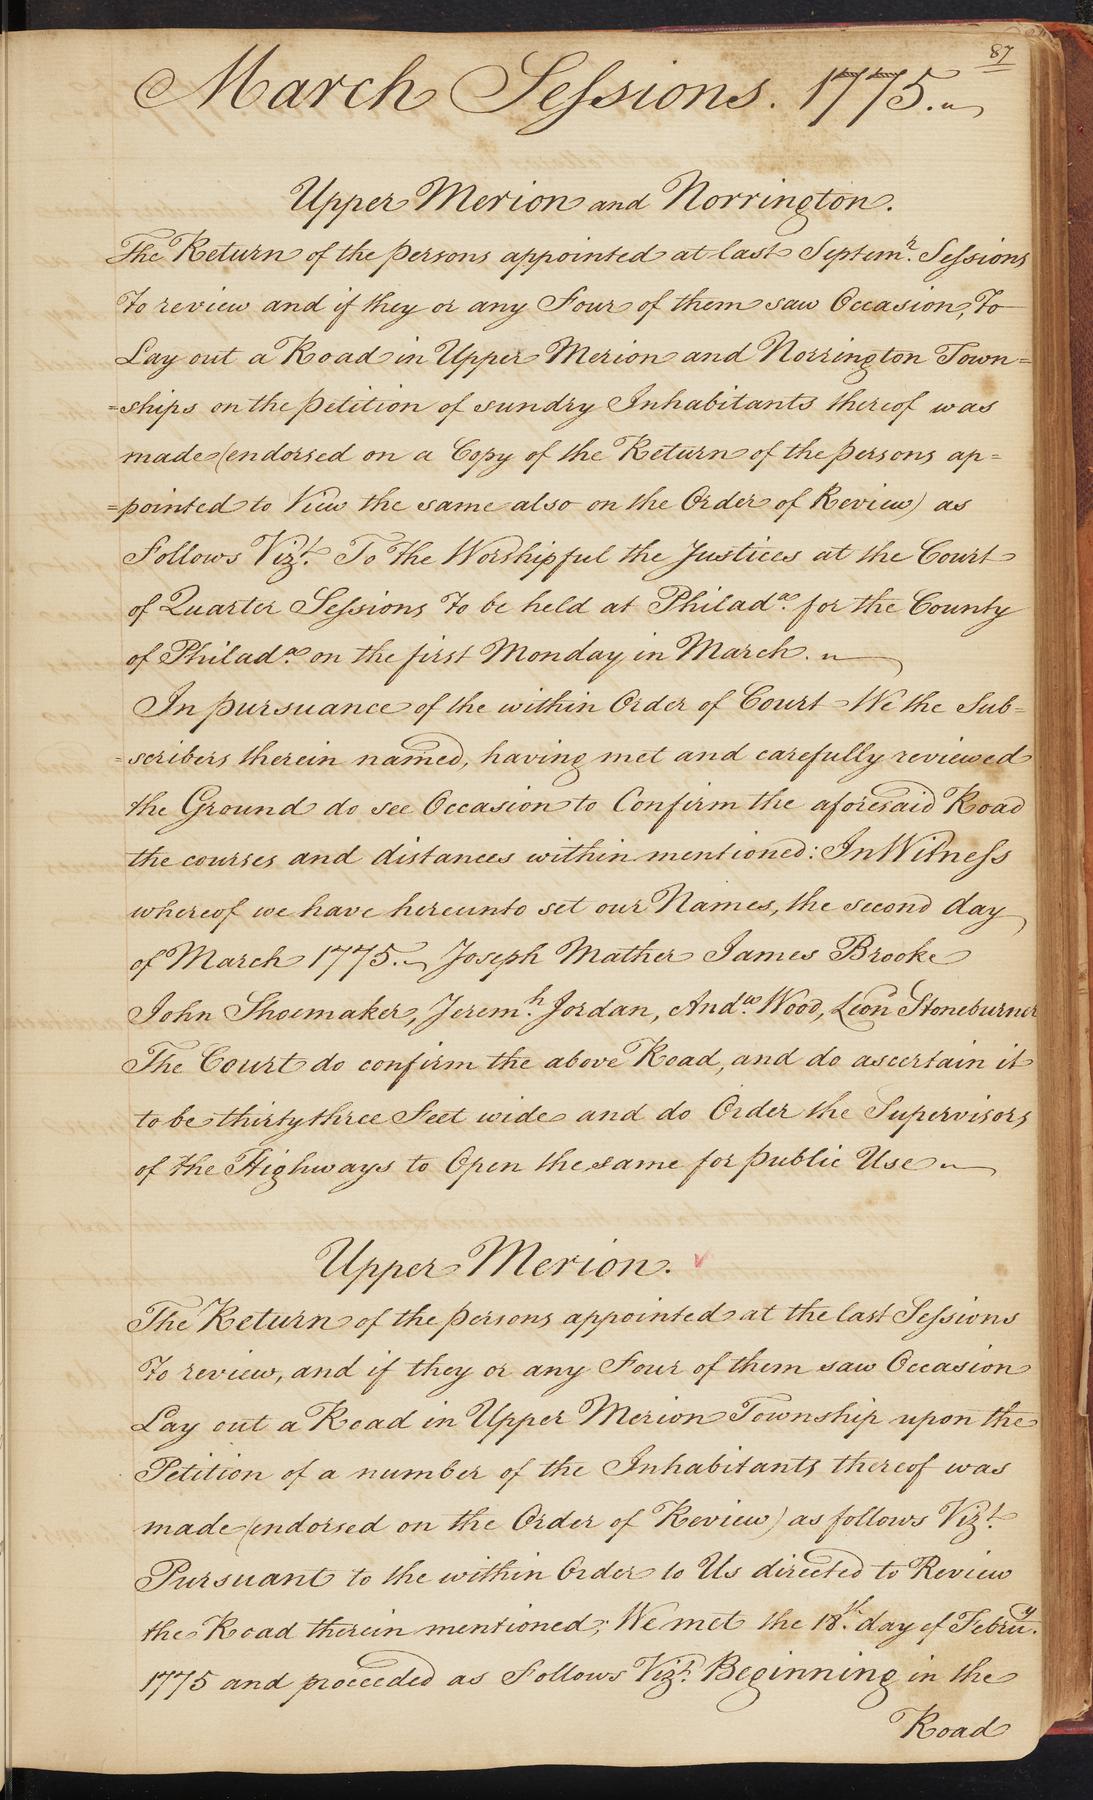 87
March Sessions. 1775.
Upper Merion and Norrington.
The Return of the persons appointed at last Septemr. Sessions
To review and if they or any Four of them saw Occasion, To
Lay out a Road in Upper Merion and Norrington Town=
=ships on the petition of sundry Inhabitants thereof was
made (endorsed on a Copy of the Return of the persons ap=
=pointed to View the same also on the Order of Review) as
Follows Vizt. To the Worshipful the Justices at the Court
of Quarter Sessions To be held at Philada. for the County
of Philada. on the first Monday in March.
In pursuance of the within Order of Court - We the Sub=
=scribers therein named, having met and carefully reviewed
the Ground do see Occasion to Confirm the aforesaid Road
the courses and distances within mentioned: In Witness
whereof we have hereunto set our Names, the second day
of March 1775. Joseph Mather James Brooke
John Shoemaker, Jeremh. Jordan, Andw. Wood, Leond Stoneburner
The Court do confirm the above Road, and do ascertain it
to be thirty three Feet wide and do Order the Supervisors
of the Highways to Open the same for public Use
Upper Merion.
The Return of the persons appointed at the last Sessions
To review, and if they or any Four of them saw Occasion
Lay out a Road in Upper Merion Township upon the
Petition of a number of the Inhabitants thereof was
made (endorsed on the Order of Review) as follows Vizt.
Pursuant to the within Order to Us directed to Review
the Road therein mentioned; We met the 18th. day of Februy.
1775 and proceeded as Follows Vizt. Beginning in the
Road